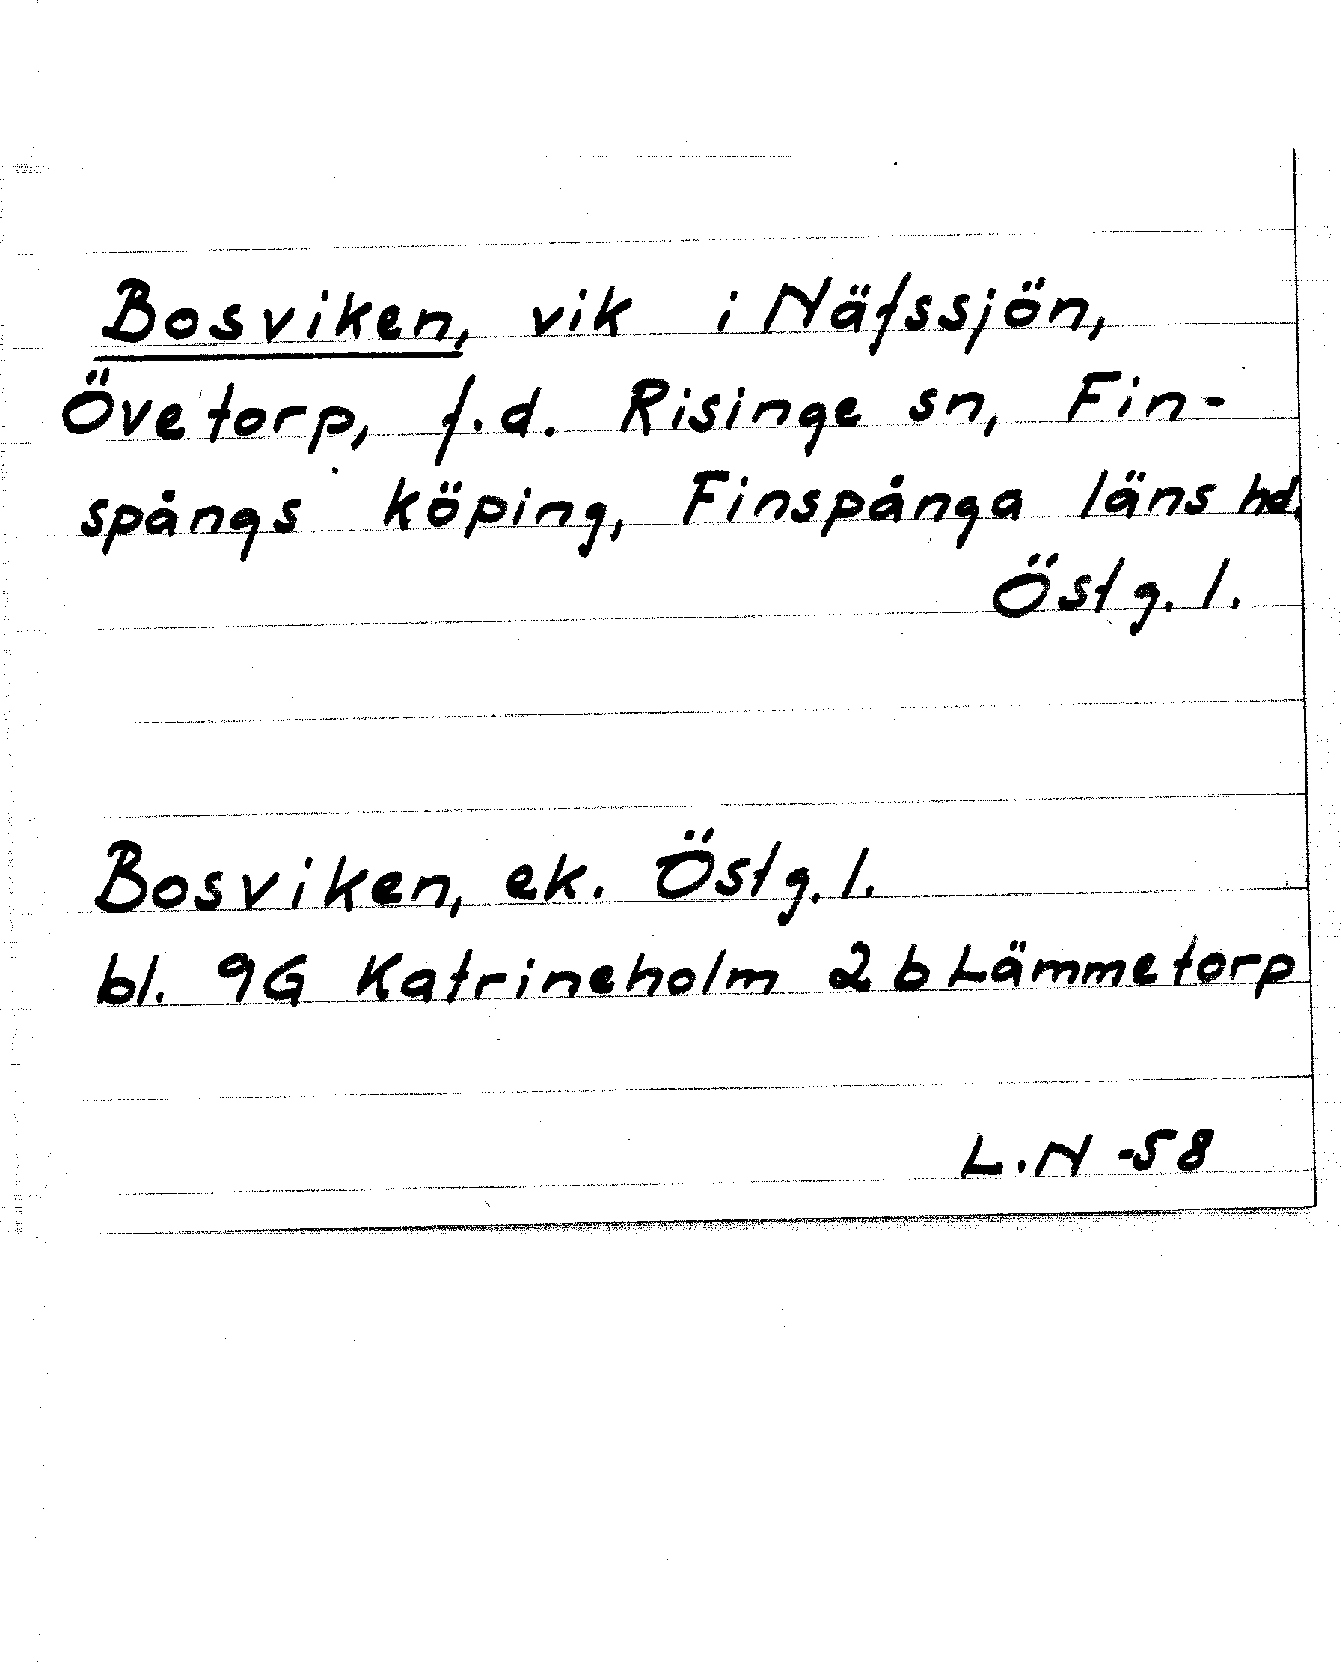 Bosviken, vik i Näfssjön,
Övetorp, f.d. Risinge sn, Fin-
spångs köping, Finspånga läns hd.
Östg. l.
Bosviken, ek. Östg. l.
bl. 9G Katrineholm 2 b Lämmetorp
L.N -58